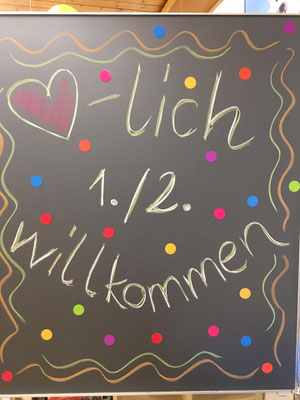 -lich
1./2.
willkommen